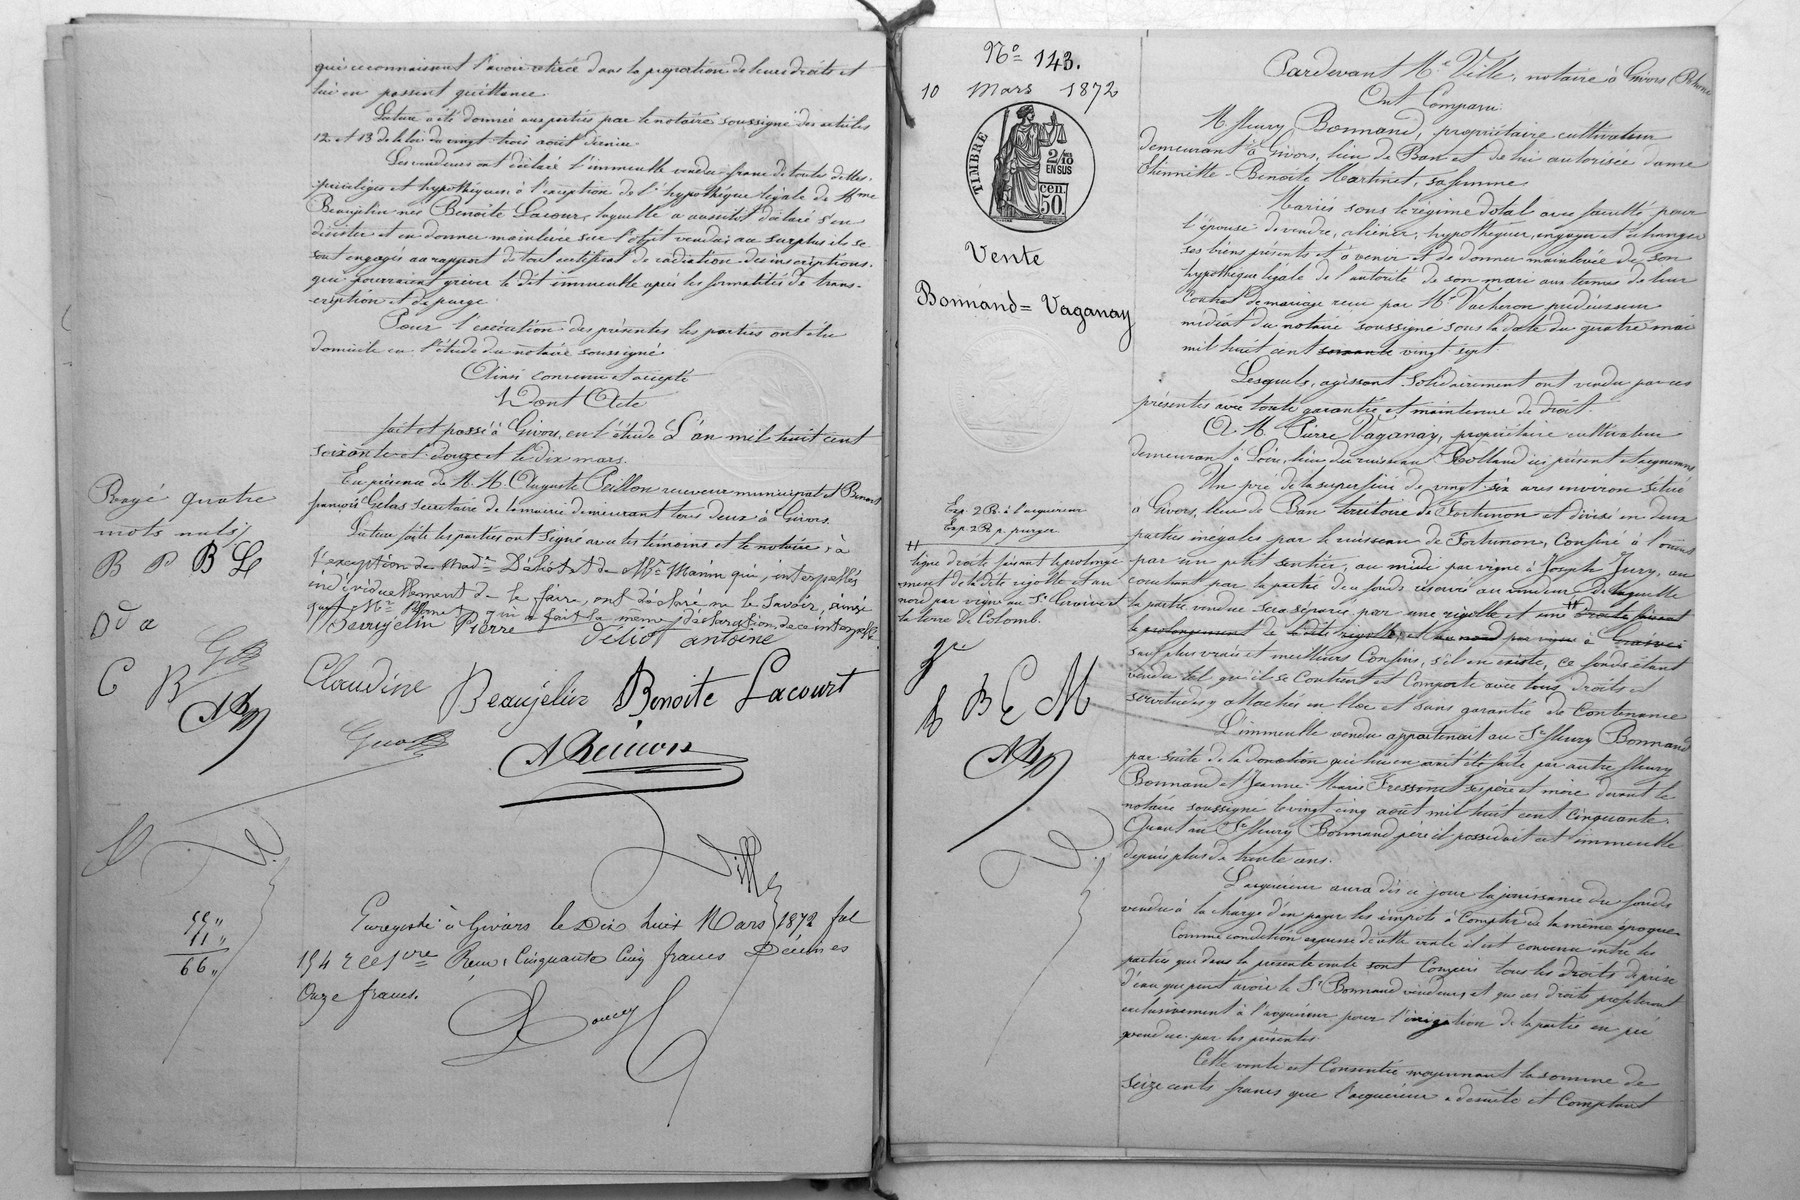 qui reconnaissent l'avoir retirée dans la proportion de leurs droits et
lui en passent quittance.
Lecture a été donnée aux parties par le notaire soussigné des articles
12 et 13 de la loi du vingt trois août dernier.
Les vendeurs ont déclaré l'immeuble vendu franc de toutes dettes,
privilèges et hypothèques à l'exception de l'hypothèque légale de Mme
Beaujelin née Benoite Lacour, laquelle a aussitôt déclaré s'en
désister et en donner mainlevée sur l'objet vendu; au surplus ils se
sont engagés au rapport de tout certificat de radiation des inscriptions
qui pourraient grever le dit immeuble après les formalités de trans-
cription et de purge.
Pour l'exécution des présentes les parties ont élu
domicile en l'étude du notaire soussigné
Ainsi convenu et accepté
Dont Acte
fait et passé à Givors, en l'étude L'an mil huit cent
soixante et douze et le dix mars.
En présence de M.M. Auguste Peillon receveur municipal et Benoit
françois Gelas secrétaire de la mairie demeurant tous deux à Givors.
Lecture faite les parties ont signé avec les témoins et le notaire, à
l'exception de Made Déliot et de Mr Marin qui, interpellés
individuellement de le faire, ont déclaré ne le savoir, ainsi
que Mr qui a fait la même déclaration, de ce interpellé
Beaujelin Pierre Déliot antoine
Claudine Beaujelin Benoite Lacourt
Ville
Rayé quatre
mots nuls
B P B L
D d a
C B
55 "
11 "
66 "
Enregistré à Givors le Dix huit Mars 1872 fol
154 Reçu: Cinquante Cinq francs Décimes
Onze francs.
No 143.
10 Mars 1872
TIMBRE
2/10
EN SUS
50 cen.
Vente
Bonnand = Vaganay
Exp. 2 R. à l'acquéreur
Exp. 2 R. p. purger
ligne droite faisant le prolonge
ment de la dite rigole et au
nord par vigne au Sr
la terre de Colomb.
B E M
Pardevant Me Ville, notaire à Givors (Rhône
Ont Comparu
M. fleury Bonnand, propriétaire cultivateur
demeurant à Givors, lieu de Ban et de lui autorisée dame
Etiennette Benoite Martinet, sa femme
Mariés sous le régime dotal avec faculté pour
l'épouse de vendre, aliéner, hypothéquer, engager et échanger
ses biens présents et à venir et de donner mainlevée de son
hypothèque légale de l'autorité de son mari aux termes de leur
Contrat de mariage reçu par Me Vacheron prédécesseur
médiat du notaire soussigné sous la date du quatre mai
mil huit cent soixante vingt sept
Lesquels, agissant solidairement ont vendu par ces
présentes avec toute garantie et maintenue de droit.
A M. Pierre Vaganay, propriétaire cultivateur
demeurant à Loire, lieu du ruisseau Rolland ici présent et acquéreur
Un pré de la superficie de vingt six ares environ situé
à Givors, lieu de Ban territoire de Fortunon et divisé en deux
parties inégales par le ruisseau de Fortunon, Confiné à l'orient
par un petit sentier, au midi par vigne à Joseph Jury, au
couchant par la partie de ce fonds réservée au vendeur de laquelle
la partie vendue sera séparée par une rigole et une droite faisant
le prolongement de la dite rigole et au nord par vigne à
sauf plus vrais et meilleurs Confins, s'il en existe, ce fonds étant
vendu tel qu'il se Contient et Comporte avec tous droits et
servitudes y attachés en bloc et sans garantie de Contenance
L'immeuble vendu appartenait au Sr fleury Bonnand
par suite de la donation qui lui en avait été faite par autre fleury
Bonnand et Jeanne Marie Fressinet ses père et mère devant le
notaire soussigné le vingt cinq août mil huit cent Cinquante.
Quant au Sr fleury Bonnand père il possédait cet immeuble
depuis plus de trente ans.
L'acquéreur aura dès ce jour la jouissance du fonds
vendu à la charge d'en payer les impôts à Compter de la même époque
Comme condition expresse de cette vente il est convenu entre les
parties que dans la présente vente sont Compris tous les droits de prise
d'eau que peut avoir le Sr Bonnand vendeur, et que ces droits profiteront
exclusivement à l'acquéreur pour l'irrigation de la partie en pré
vendue par les présentes
Cette vente est Consentie moyennant la somme de
seize cents francs que l'acquéreur a de suite et Comptant